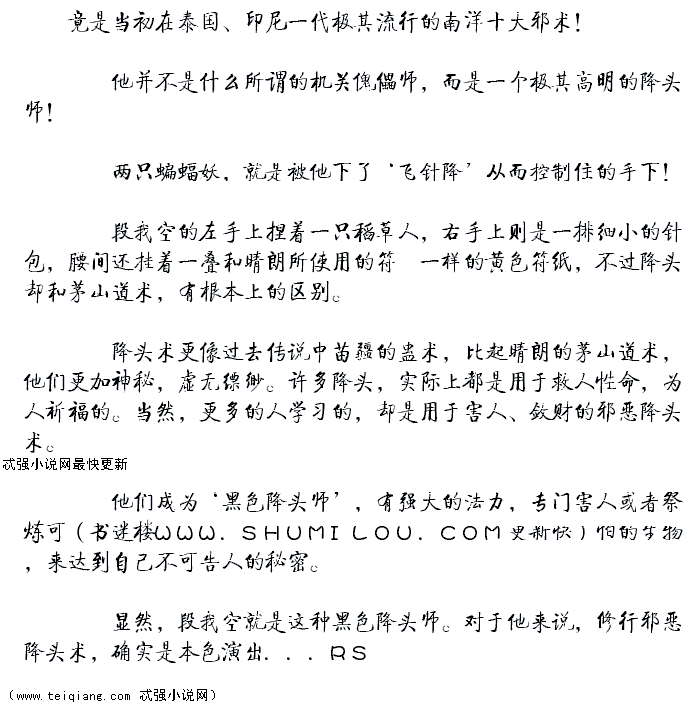 竟是当初在泰国、印尼一代极其流行的南洋十大邪术！
他并不是什么所谓的机关傀儡师，而是一个极其高明的降头
师！
两只蝙蝠妖，就是被他下了‘飞针降’从而控制住的手下！
段我空的左手上捏着一只稻草人，右手上则是一排细小的针
包，腰间还挂着一叠和晴朗所使用的符　一样的黄色符纸，不过降头
却和茅山道术，有根本上的区别。
降头术更像过去传说中苗疆的蛊术，比起晴朗的茅山道术，
他们更加神秘，虚无缥缈。许多降头，实际上都是用于救人性命，为
人祈福的。当然，更多的人学习的，却是用于害人、敛财的邪恶降头
术。
忒强小说网最快更新
他们成为‘黑色降头师’，有强大的法力，专门害人或者祭
炼可（书迷楼ＷＷＷ．ＳＨＵＭＩＬＯＵ．ＣＯＭ更新快）怕的生物
，来达到自己不可告人的秘密。
显然，段我空就是这种黑色降头师。对于他来说，修行邪恶
降头术，确实是本色演出．．．ＲＳ
（www.teiqiang.com 忒强小说网）